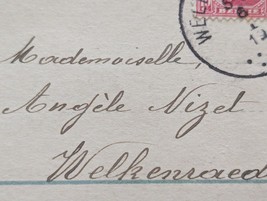 WEL
Mademoiselle
Angèle Nizet
Welkenraed